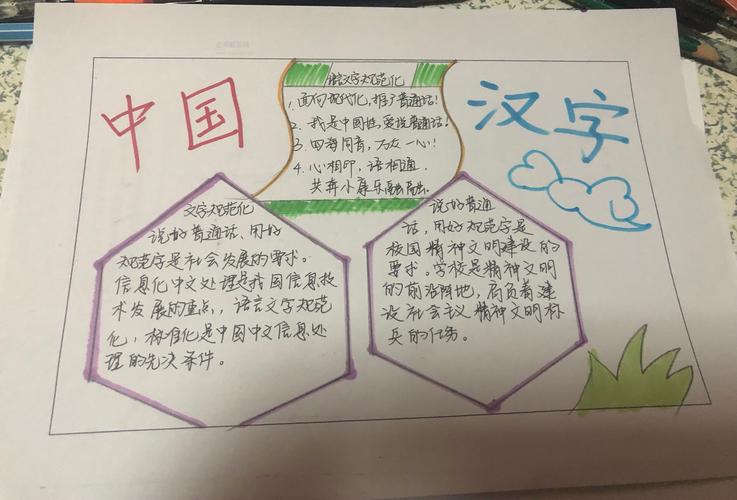 中国
语文字规范化
1. 面向现代化，推广普通话！
2. 我是中国娃，爱说普通话！
3. 四海同音，万众一心！
4. 心相印，语相通，
共奔小康乐融融。
汉字
文字规范化
说好普通话、用好
规范字是社会发展的要求。
信息化中文处理是我国信息技
术发展的重点，语言文字规范
化，标准化是中国中文信息处
理的先决条件。
说好普通
话，用好规范字是
校园精神文明建设的
要求。学校是精神文明
的前沿阵地，肩负着建
设社会主义精神文明标
兵的任务。